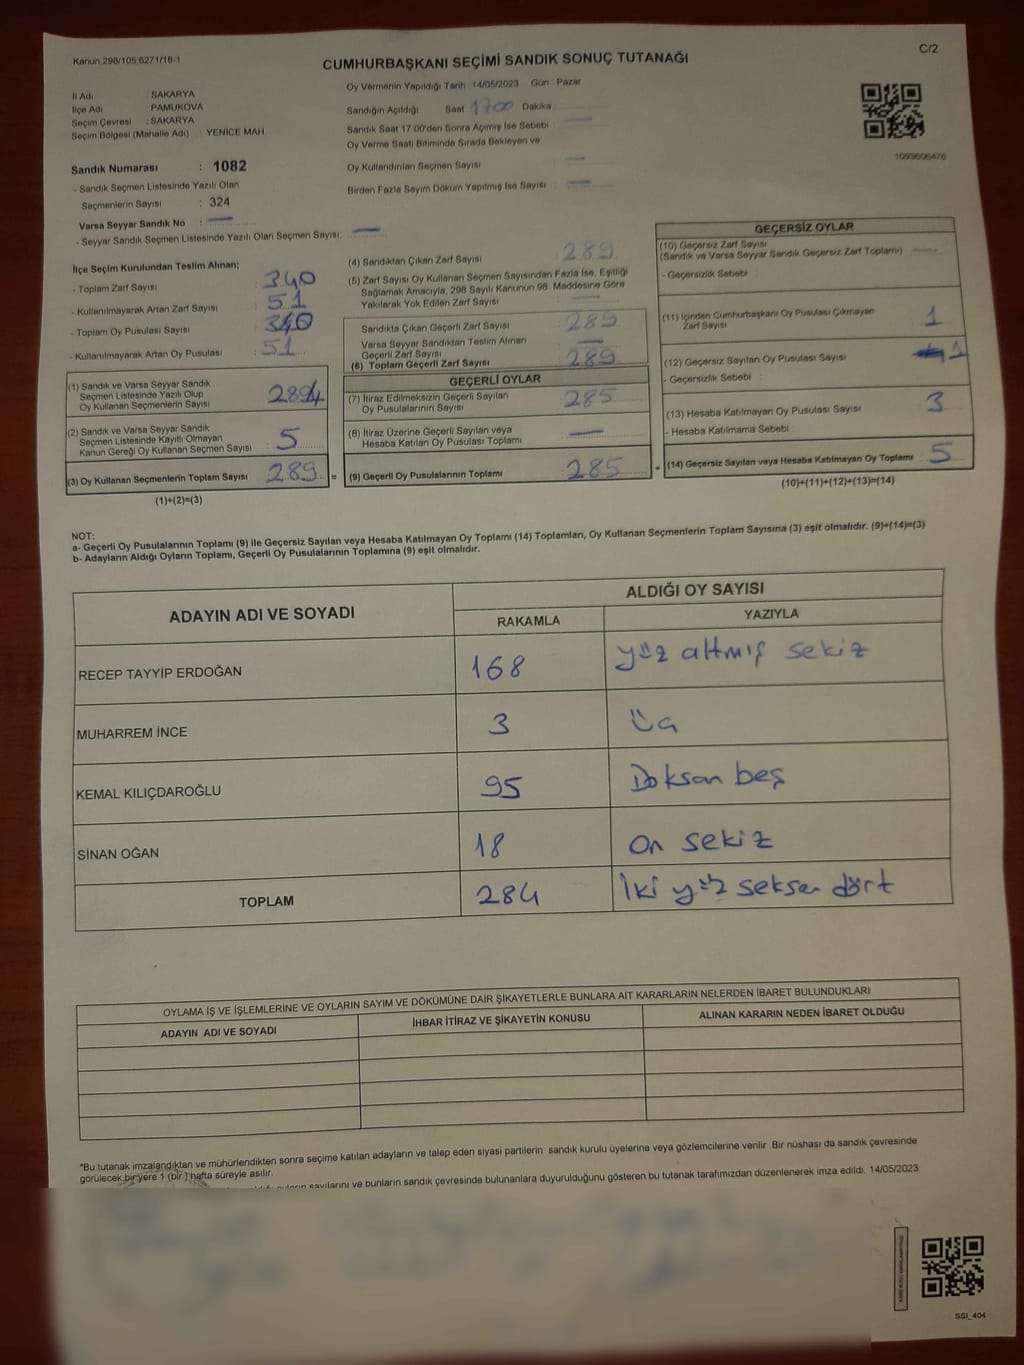 Kanun.298/105,6271/18-1
C/2
CUMHURBAŞKANI SEÇİMİ SANDIK SONUÇ TUTANAĞI
İl Adı : SAKARYA
İlçe Adı : PAMUKOVA
Seçim Çevresi : SAKARYA
Seçim Bölgesi (Mahalle Adı) : YENICE MAH.
Sandık Numarası : 1082
- Sandık Seçmen Listesinde Yazılı Olan
Seçmenlerin Sayısı : 324
Varsa Seyyar Sandık No : —
- Seyyar Sandık Seçmen Listesinde Yazılı Olan Seçmen Sayısı: —
Oy Vermenin Yapıldığı Tarih : 14/05/2023 Gün : Pazar
Sandığın Açıldığı Saat 1700 Dakika
Sandık Saat 17.00'den Sonra Açılmış İse Sebebi —
Oy Verme Saati Bitiminde Sırada Bekleyen ve
Oy Kullandırılan Seçmen Sayısı —
Birden Fazla Sayım Döküm Yapılmış İse Sayısı —
1093606476
İlçe Seçim Kurulundan Teslim Alınan;
- Toplam Zarf Sayısı : 340
- Kullanılmayarak Artan Zarf Sayısı : 51
- Toplam Oy Pusulası Sayısı : 340
- Kullanılmayarak Artan Oy Pusulası : 51
(1) Sandık ve Varsa Seyyar Sandık
Seçmen Listesinde Yazılı Olup
Oy Kullanan Seçmenlerin Sayısı 284
(2) Sandık ve Varsa Seyyar Sandık
Seçmen Listesinde Kayıtlı Olmayan
Kanun Gereği Oy Kullanan Seçmen Sayısı 5
(3) Oy Kullanan Seçmenlerin Toplam Sayısı 289 =
(1)+(2)=(3)
(4) Sandıktan Çıkan Zarf Sayısı 289
(5) Zarf Sayısı Oy Kullanan Seçmen Sayısından Fazla İse, Eşitliği
Sağlamak Amacıyla, 298 Sayılı Kanunun 98. Maddesine Göre
Yakılarak Yok Edilen Zarf Sayısı —
Sandıkta Çıkan Geçerli Zarf Sayısı 289
Varsa Seyyar Sandıktan Teslim Alınan
Geçerli Zarf Sayısı —
(6) Toplam Geçerli Zarf Sayısı 289
GEÇERLİ OYLAR
(7) İtiraz Edilmeksizin Geçerli Sayılan
Oy Pusulalarının Sayısı 285
(8) İtiraz Üzerine Geçerli Sayılan veya
Hesaba Katılan Oy Pusulası Toplamı —
(9) Geçerli Oy Pusulalarının Toplamı 285 +
GEÇERSİZ OYLAR
(10) Geçersiz Zarf Sayısı
(Sandık ve Varsa Seyyar Sandık Geçersiz Zarf Toplamı) —
- Geçersizlik Sebebi :
(11) İçinden Cumhurbaşkanı Oy Pusulası Çıkmayan
Zarf Sayısı 1
(12) Geçersiz Sayılan Oy Pusulası Sayısı 1
- Geçersizlik Sebebi :
(13) Hesaba Katılmayan Oy Pusulası Sayısı 3
- Hesaba Katılmama Sebebi :
(14) Geçersiz Sayılan veya Hesaba Katılmayan Oy Toplamı 5
(10)+(11)+(12)+(13)=(14)
NOT:
a- Geçerli Oy Pusulalarının Toplamı (9) ile Geçersiz Sayılan veya Hesaba Katılmayan Oy Toplamı (14) Toplamları, Oy Kullanan Seçmenlerin Toplam Sayısına (3) eşit olmalıdır. (9)+(14)=(3)
b- Adayların Aldığı Oyların Toplamı, Geçerli Oy Pusulalarının Toplamına (9) eşit olmalıdır.
ADAYIN ADI VE SOYADI
ALDIĞI OY SAYISI
RAKAMLA YAZIYLA
RECEP TAYYİP ERDOĞAN 168 yüz altmış sekiz
MUHARREM İNCE 3 üç
KEMAL KILIÇDAROĞLU 95 Doksan beş
SİNAN OĞAN 18 on sekiz
TOPLAM 284 İki yüz seksen dört
OYLAMA İŞ VE İŞLEMLERİNE VE OYLARIN SAYIM VE DÖKÜMÜNE DAİR ŞİKAYETLERLE BUNLARA AİT KARARLARIN NELERDEN İBARET BULUNDUKLARI
ADAYIN ADI VE SOYADI İHBAR İTİRAZ VE ŞİKAYETİN KONUSU ALINAN KARARIN NEDEN İBARET OLDUĞU
*Bu tutanak imzalandıktan ve mühürlendikten sonra seçime katılan adayların ve talep eden siyasi partilerin sandık kurulu üyelerine veya gözlemcilerine verilir. Bir nüshası da sandık çevresinde
görülecek bir yere 1 (bir) hafta süreyle asılır.
sayılarını ve bunların sandık çevresinde bulunanlara duyurulduğunu gösteren bu tutanak tarafımızdan düzenlenerek imza edildi. 14/05/2023
SSI_404